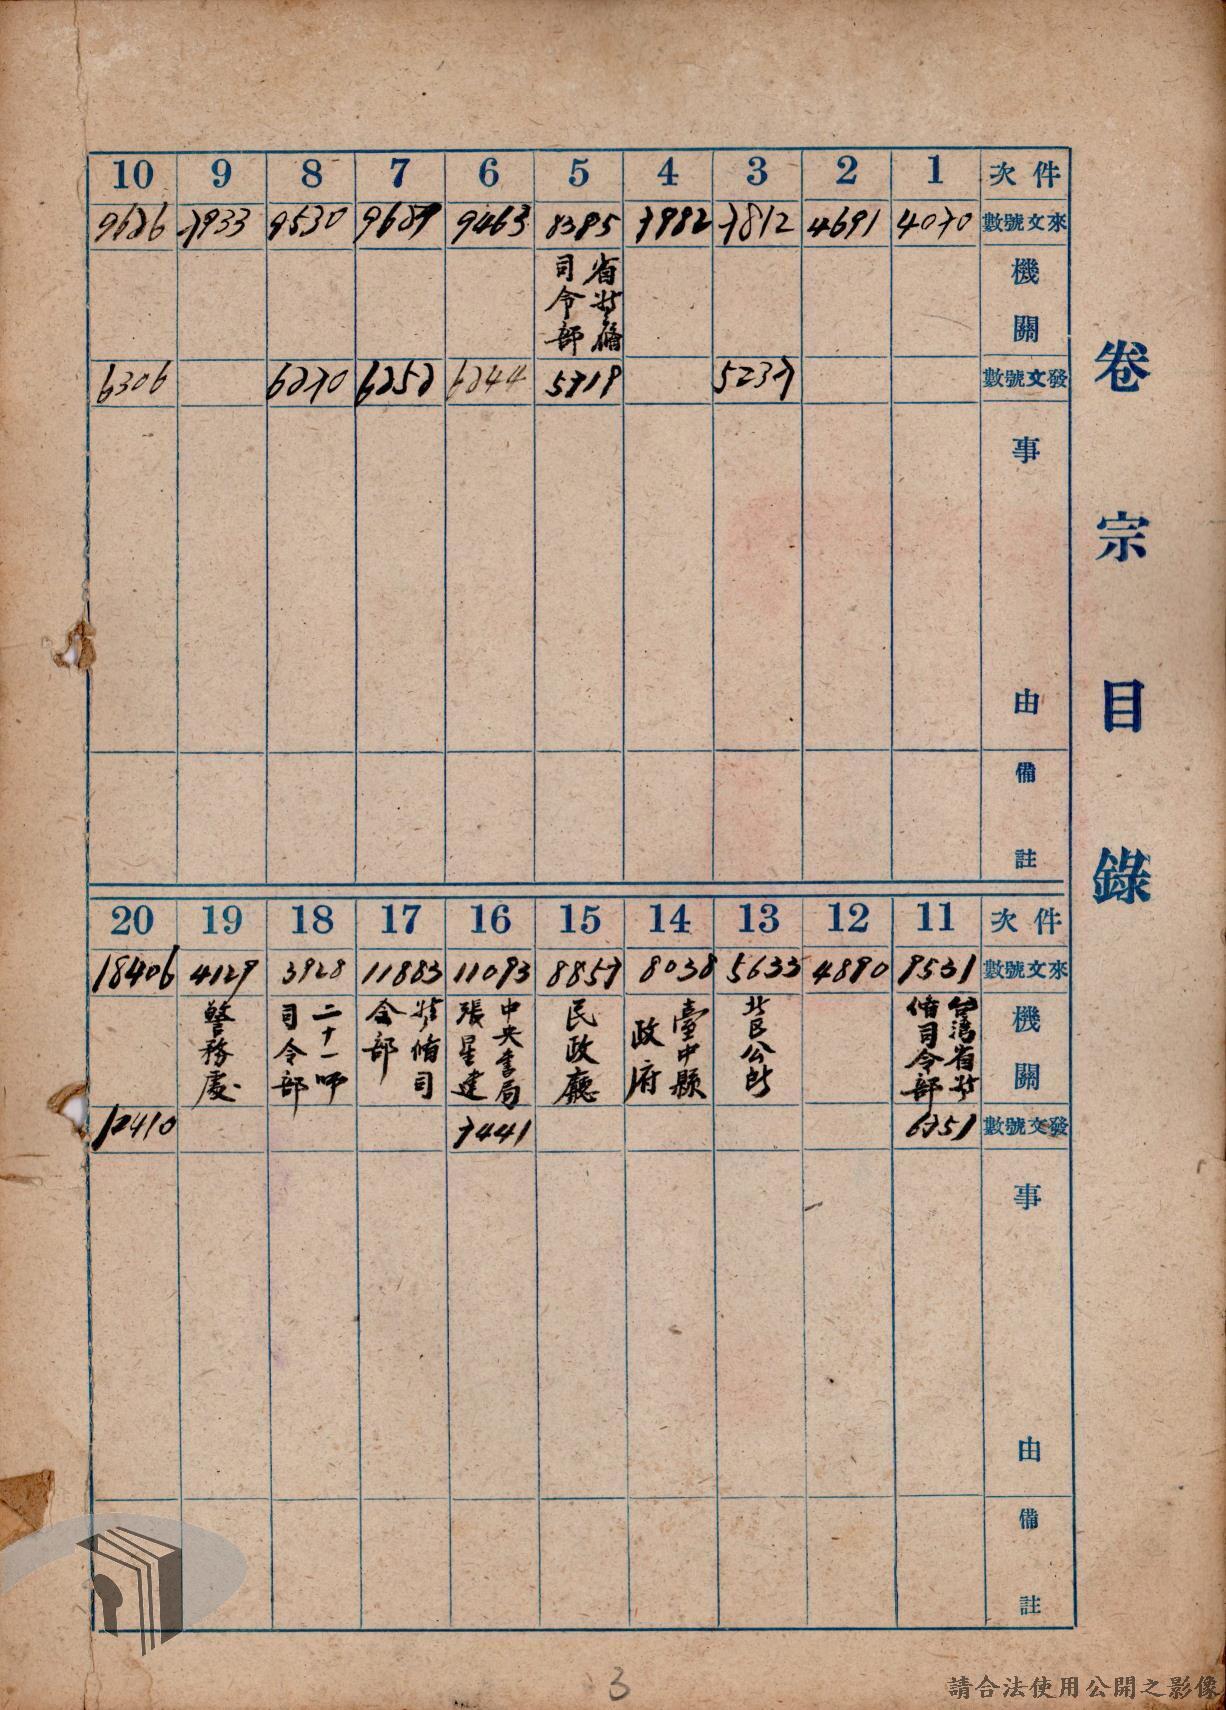 卷宗目錄
件次 1 2 3 4 5 6 7 8 9 10
來文號數 4070 4691 7812 7982 8385 9463 9530 7933
機關 省警備司令部
發文號數 5237 5718 6244 6252 6270 6306
事由
備註
件次 11 12 13 14 15 16 17 18 19 20
來文號數 9531 4890 5633 8038 8857 11093 11883 3928 4129 18406
機關 台灣省警備司令部 北區公所 臺中縣政府 民政廳 中央書局張星建 警備司令部 二十一師司令部 警務處
發文號數 6751 7441 12410
事由
備註
3
請合法使用公開之影像